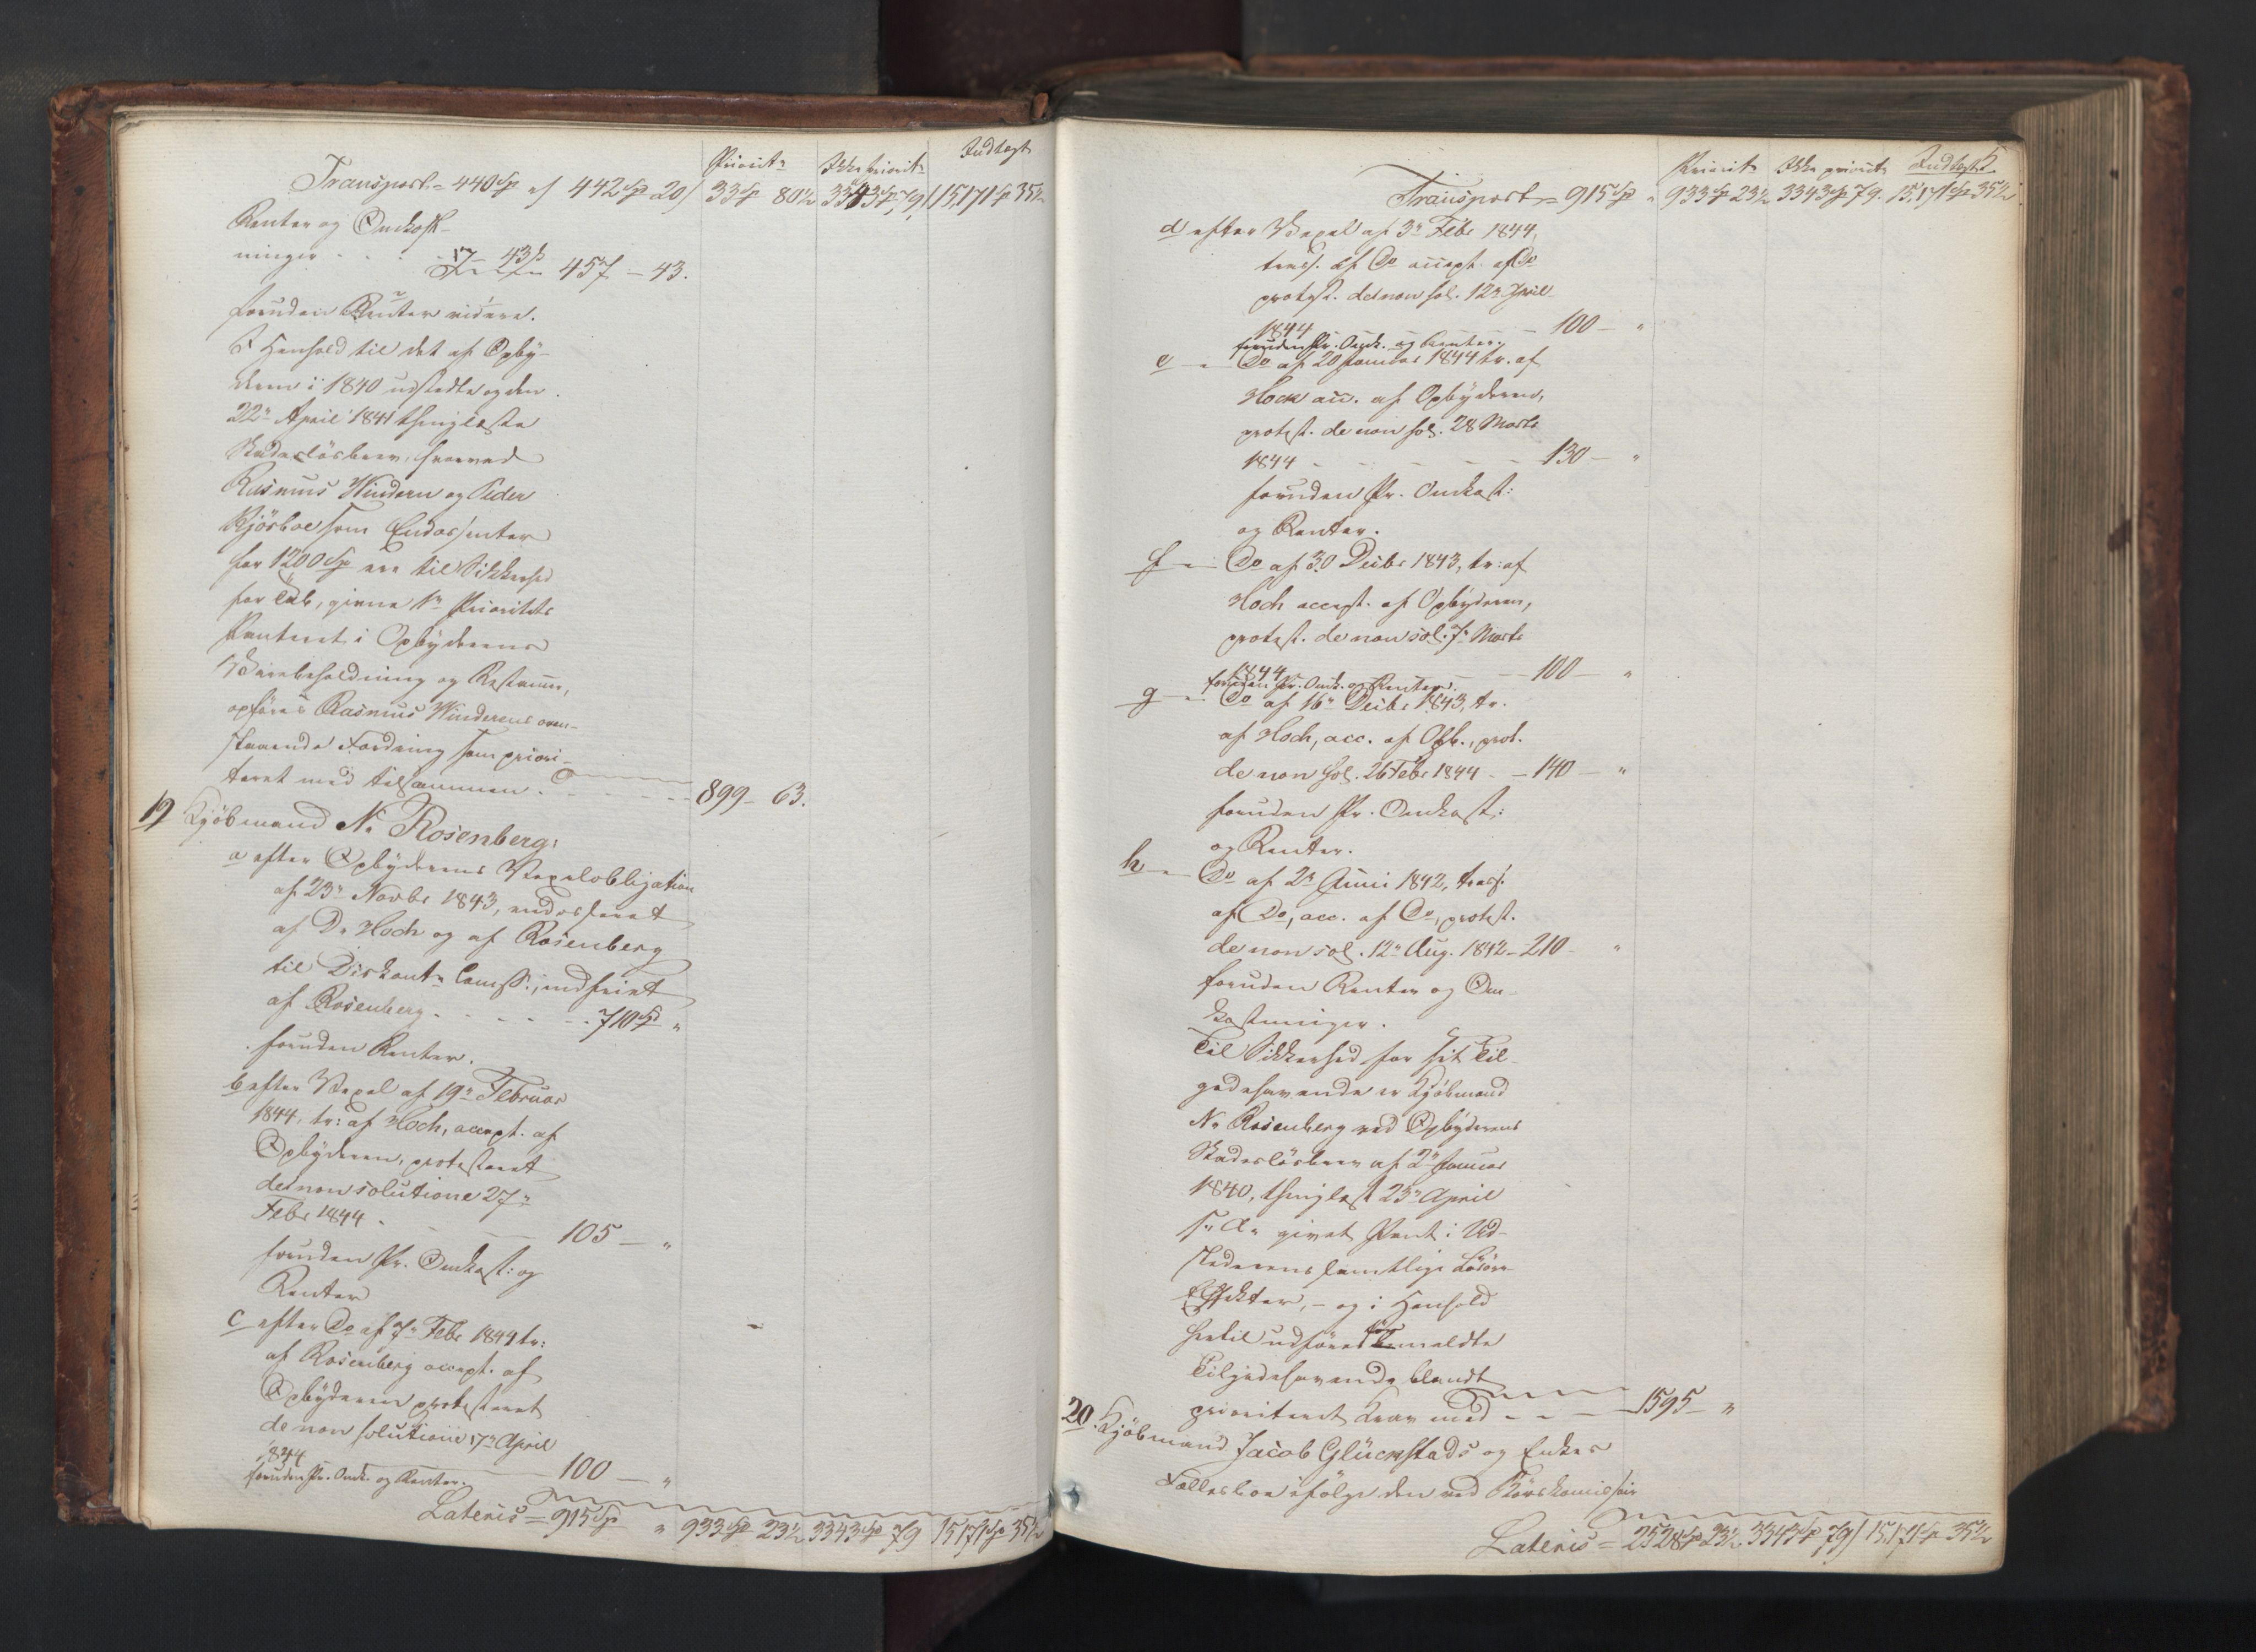 Priorit: Ikke priorit: Indtægt
Transport = 440 Sp „ 442 Sp 20 33 Sp 80½ 3343 Sp 79 15,171 Sp 35½
Renter og Omkost-
ninger . . . 17 - 43 ß 457 - 43.
foruden Renter videre.
I Henhold til det af Opby-
deren i 1840 udstedte og den
22de April 1841 thinglæste
Skadesløsbrev, hvorved
Rasmus Windern og Peder
Kjörboe som Endossenter
for 1200 Sp ere til Sikkerhed
for Tab, givne 1ste Prioritets
Panteret i Opbyderens
Varebeholdning og Restancer,
opføres Rasmus Winderens oven-
staaende Fordring som priori-
teret med tilsammen . - - - - 899 - 63.
19 Kjöbmand N. Rosenberg:
a efter Opbyderens Vexelobligation
af 23de Novbr 1843, endosseret
af D. Hoch og af Rosenberg
til Diskont. Comss:, indfriet
af Rosenberg - - - - - 710 Sp „
foruden Renter.
b efter Vexel af 19de Februar
1844, tr: af Hoch, accept. af
Opbyderen, protesteret
de non solutione 27de
Febr 1844 - - - 105 - „
foruden Pr. Omkost: og
Renter
c efter Do af 7de Febr 1844 tr:
af Rosenberg accept. af
Opbyderen protesteret
de non solutione 17de April
1844 - - - 100 - „
foruden Pr. Omk. og Renter.
Lateris = 915 Sp „ 933 Sp 23½ 3343 Sp 79 15171 Sp 35½
5
Priorit: Ikke priorit: Indtægt
Transport = 915 Sp „ 933 Sp 23½ 3343 Sp 79. 15,171 Sp 35½
d efter Vexel af 3de Febr 1844,
trass. af Do accept. af Do
protest. de non sol. 12te April
1844 - - - 100 - „
foruden Pr. Omk. og Renter.
e - „ - Do af 20 Januar 1844 tr. af
Hock acc. af Opbyderen,
protest. de non sol. 28 Marts
1844 - - - - - 130 - „
foruden Pr. Omkost:
og Renter.
f - „ - Do af 30 Decbr 1843, tr: af
Hoch accept. af Opbyderen,
protest. de non sol. 7de Marts
1844 - - - 100 - „
foruden Pr. Omk. og Renter.
g - „ - Do af 16de Decbr 1843, tr.
af Hoch, acc. af Opb., prot.
de non sol. 26 Febr 1844 - - 140 - „
foruden Pr. Omkost:
og Renter.
h - „ - Do af 2de Juni 1842, trass.
af Do, acc. af Do, protest.
de non sol. 12te Aug. 1842 - 210 - „
foruden Renter og Om-
kostninger.
Til Sikkerhed for sit Til-
godehavende er Kjöbmand
N. Rosenberg ved Opbyderens
Skadesløsbrev af 2den Januar
1840, thinglæst 23de April
s. A. givet Pant i Ud-
stederens samtlige Løsøre
Effekter, - og i Henhold
hertil udføres formeldte
Tilgodehavende blandt
prioriteret Krav med - - - 1595 - „
20. Kjöbmand Jacob Glückstads og Enkes
Fællesboe ifølge den ved Börskomissair
Lateris = 2528 Sp 23½ 3343 Sp 79 15,171 Sp 35½